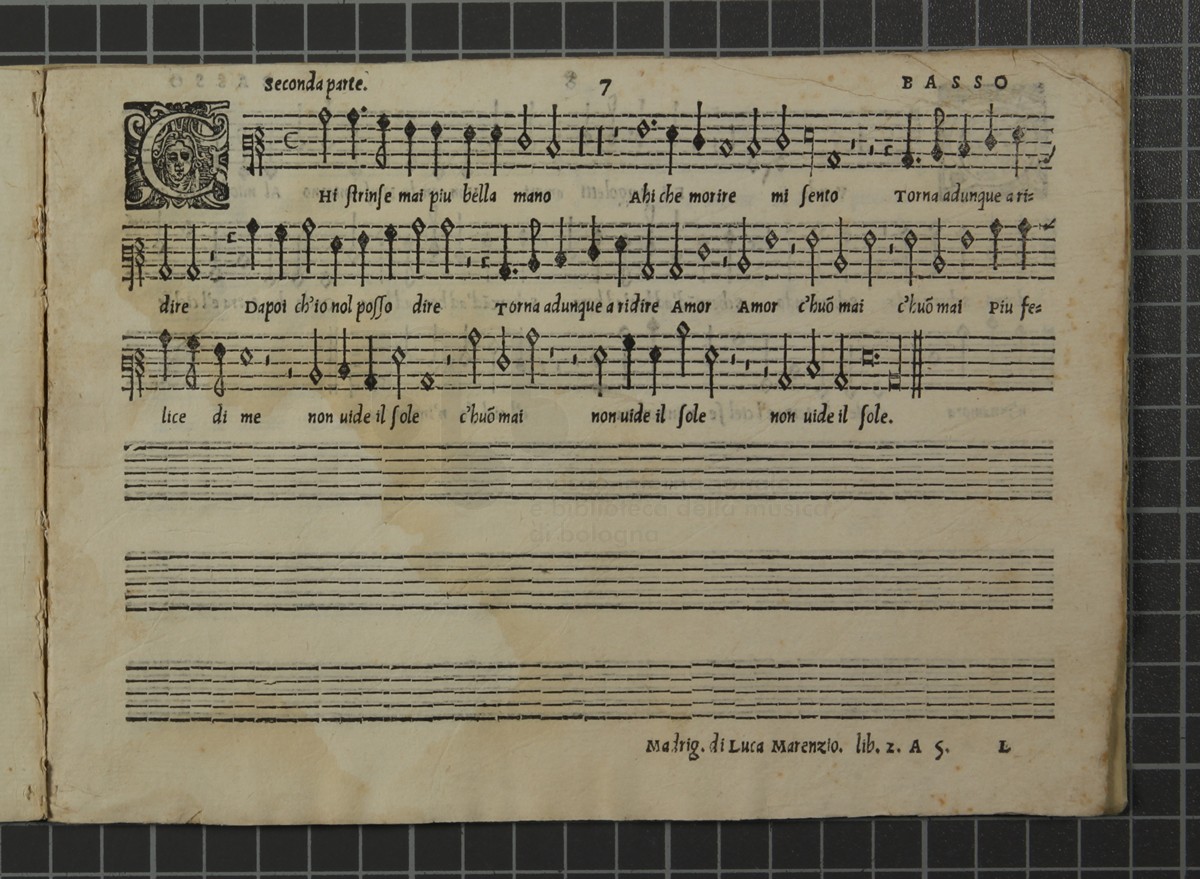 Seconda parte. 7 BASSO
CHi ſtrinſe mai piu bella mano Ahi che morire mi ſento Torna adunque a ri=
dire Dapoi ch'io nol poſſo dire Torna adunque a ridire Amor Amor c'huõ mai c'huõ mai Piu fe=
lice di me non uide il ſole c'huõ mai non uide il ſole non uide il ſole.
e biblioteca della musica
di bologna
Madrig. di Luca Marenzio. lib. 2. A 5. L